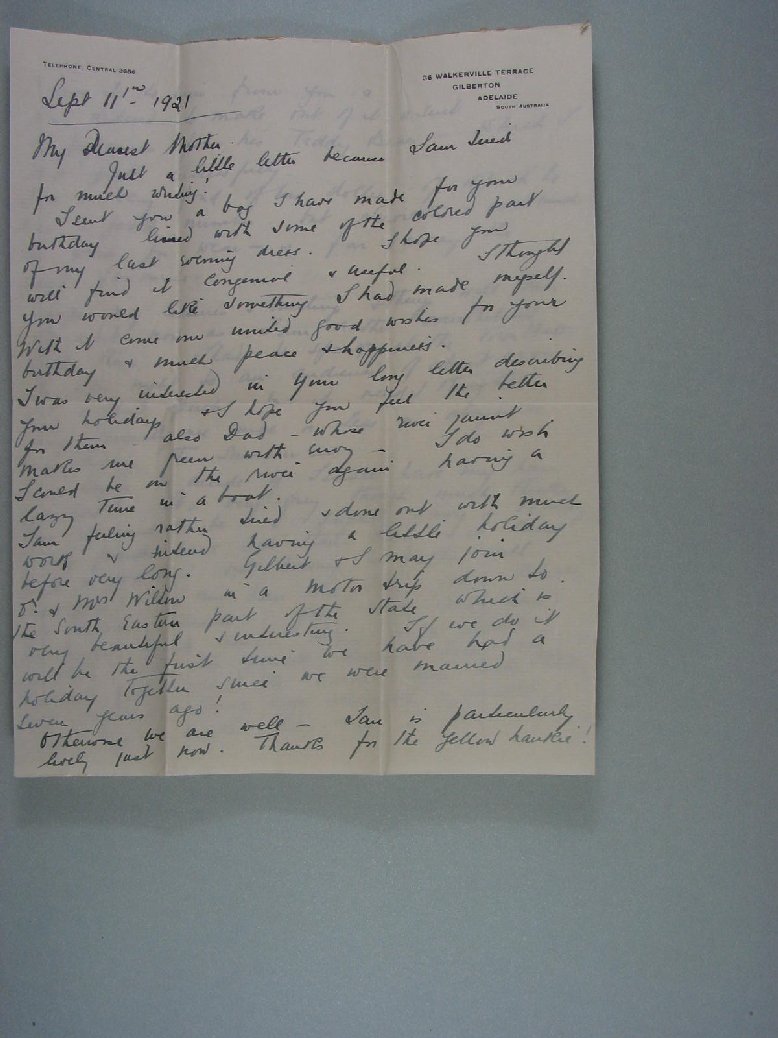 TELEPHONE, CENTRAL
WALKERVILLE TERRACE
GILBERTON
ADELAIDE
SOUTH AUSTRALIA
Sept 11th - 1921
My Dearest Mother.
Just a little letter because I am tired
for much writing!
I sent you a bag I have made for your
birthday lined with some of the colored part
of my last evening dress. I hope you
will find it congenial & useful. I thought
you would like something I had made myself.
With it come our united good wishes for your
birthday & much peace & happiness.
I was very interested in your long letter describing
your holidays & I hope you feel the better
for them - also Dad - whose river jaunt
makes me green with envy - I do wish
I could be on the river again having a
lazy time in a boat.
I am feeling rather tired & done out with much
work & intend having a little holiday
before very long. Gilbert & I may join
Dr. & Mrs Wilton in a motor trip down to
the South Eastern part of the State which is
very beautiful & interesting. If we do it
will be the first time we have had a
holiday together since we were married
seven years ago!
Otherwise we are well - Ian is particularly
lively just now. Thanks for the yellow hankie!